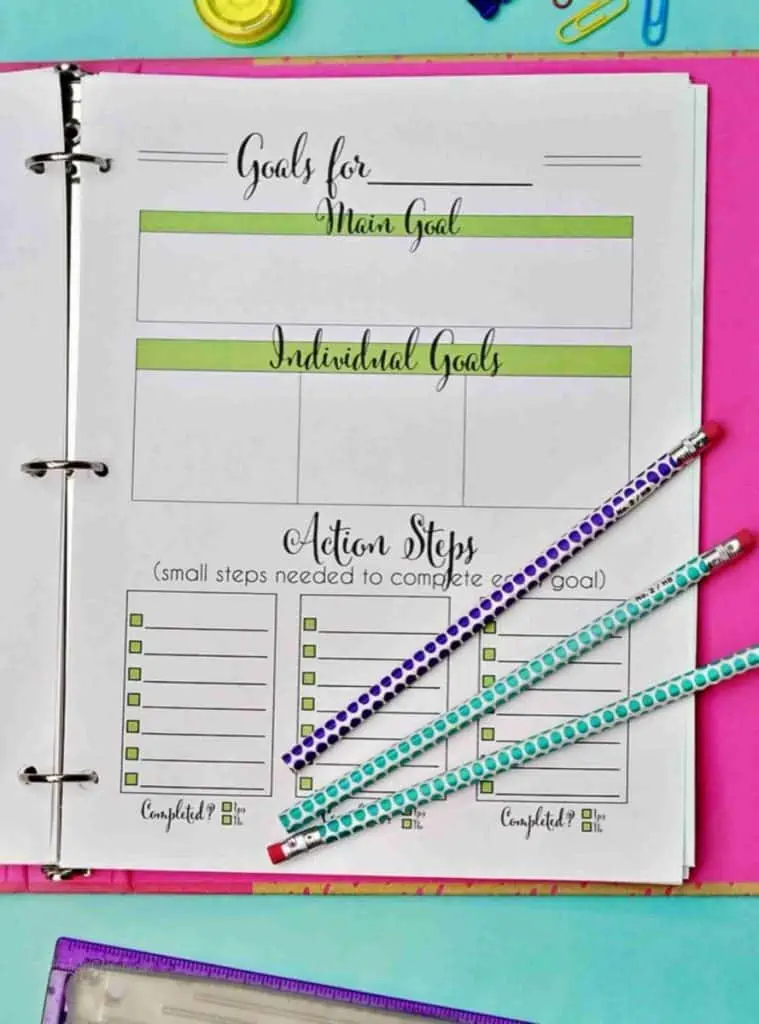 Goals for
Main Goal
Individual Goals
Action Steps
(small steps needed to complete goal)
Completed? Yes
No
Yes
No
Completed? Yes
No
No. 2 / HB
No. 2 / HB